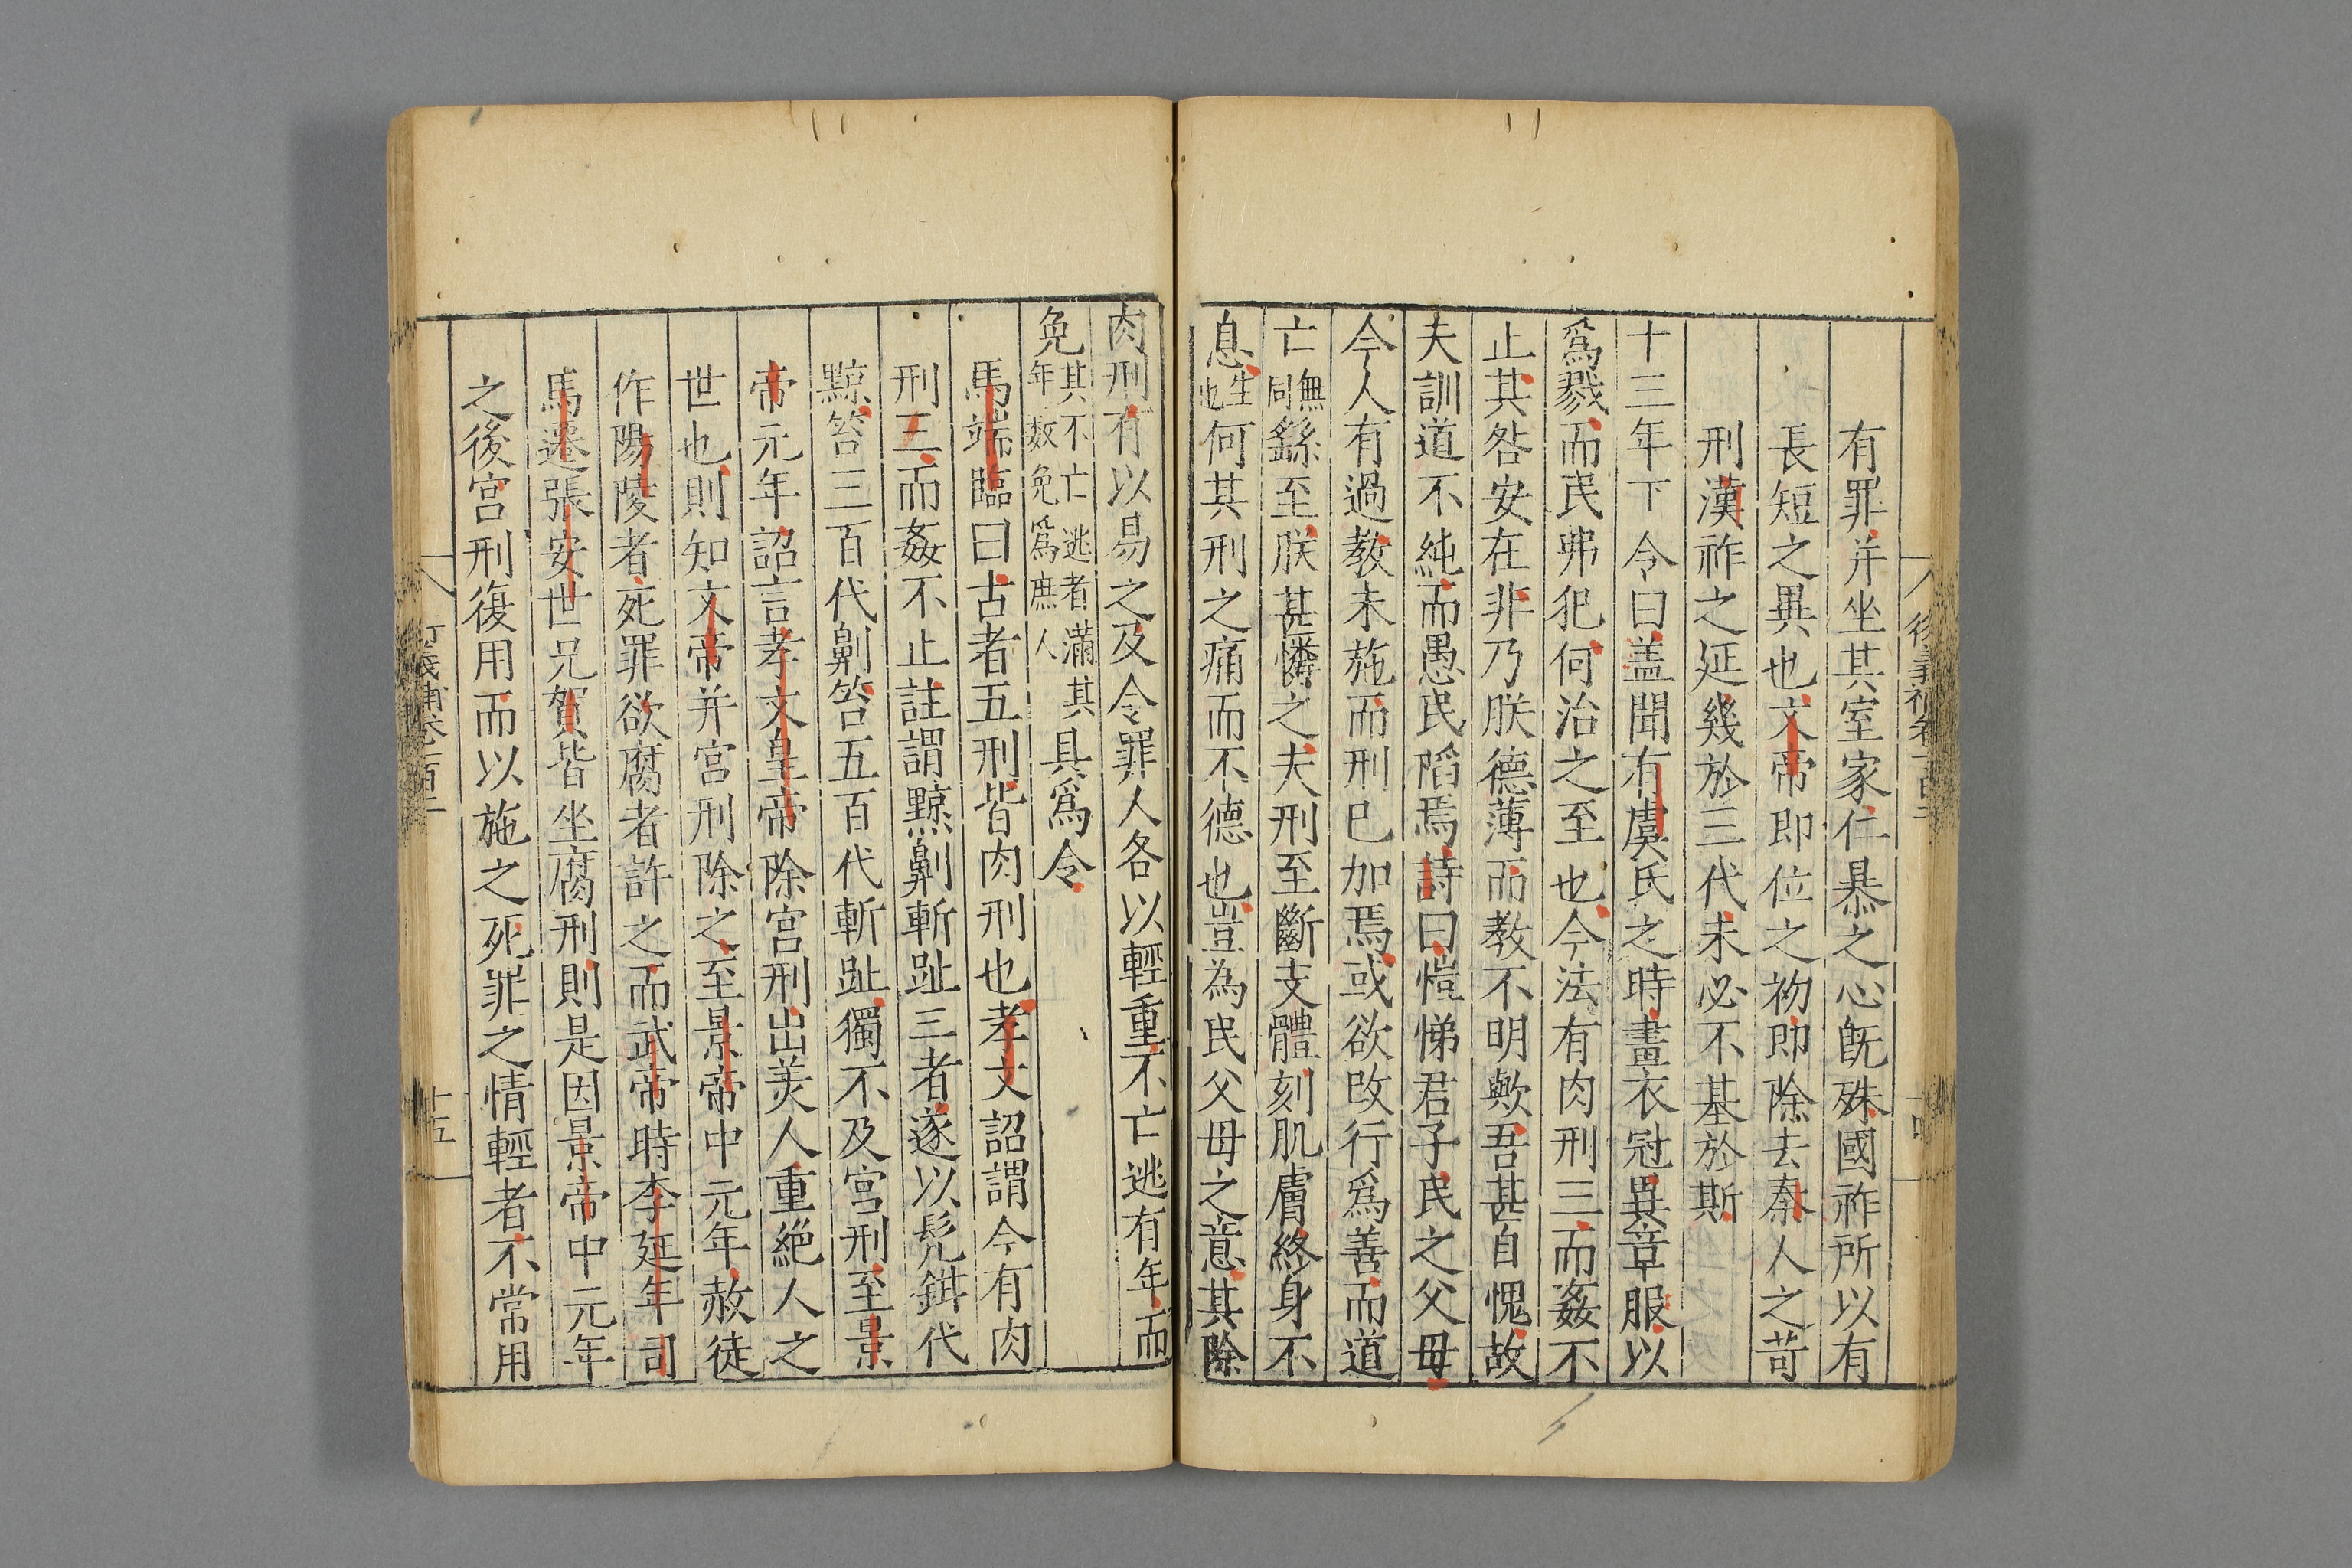 有罪并坐其室家仁暴之心旣殊國祚所以有
長短之異也文帝即位之初即除去秦人之苛
刑漢祚之延幾於三代未必不基於斯
十三年下令曰盖聞有虞氏之時畫衣冠異章服以
爲戮而民弗犯何治之至也今法有肉刑三而姦不
止其咎安在非乃朕德薄而教不明歟吾甚自愧故
夫訓道不純而愚民陷焉詩曰愷悌君子民之父母
今人有過教未施而刑已加焉或欲改行爲善而道
亡無同繇至朕甚憐之夫刑至斷支體刻肌膚終身不
息生也何其刑之痛而不德也豈為民父母之意其除
肉刑有以易之及令罪人各以輕重不亡逃有年而
免其不亡逃者滿其年数免爲庶人具爲令
馬端臨曰古者五刑皆肉刑也孝文詔謂今有肉
刑三而姦不止註謂黥劓斬趾三者遂以髠鉗代
黥笞三百代劓笞五百代斬趾獨不及宮刑至景
帝元年詔言孝文皇帝除宮刑出美人重絕人之
世也則知文帝并宮刑除之至景帝中元年赦徒
作陽陵者死罪欲腐者許之而武帝時李延年司
馬遷張安世兄賀皆坐腐刑則是因景帝中元年
之後宮刑復用而以施之死罪之情輕者不常用
十五